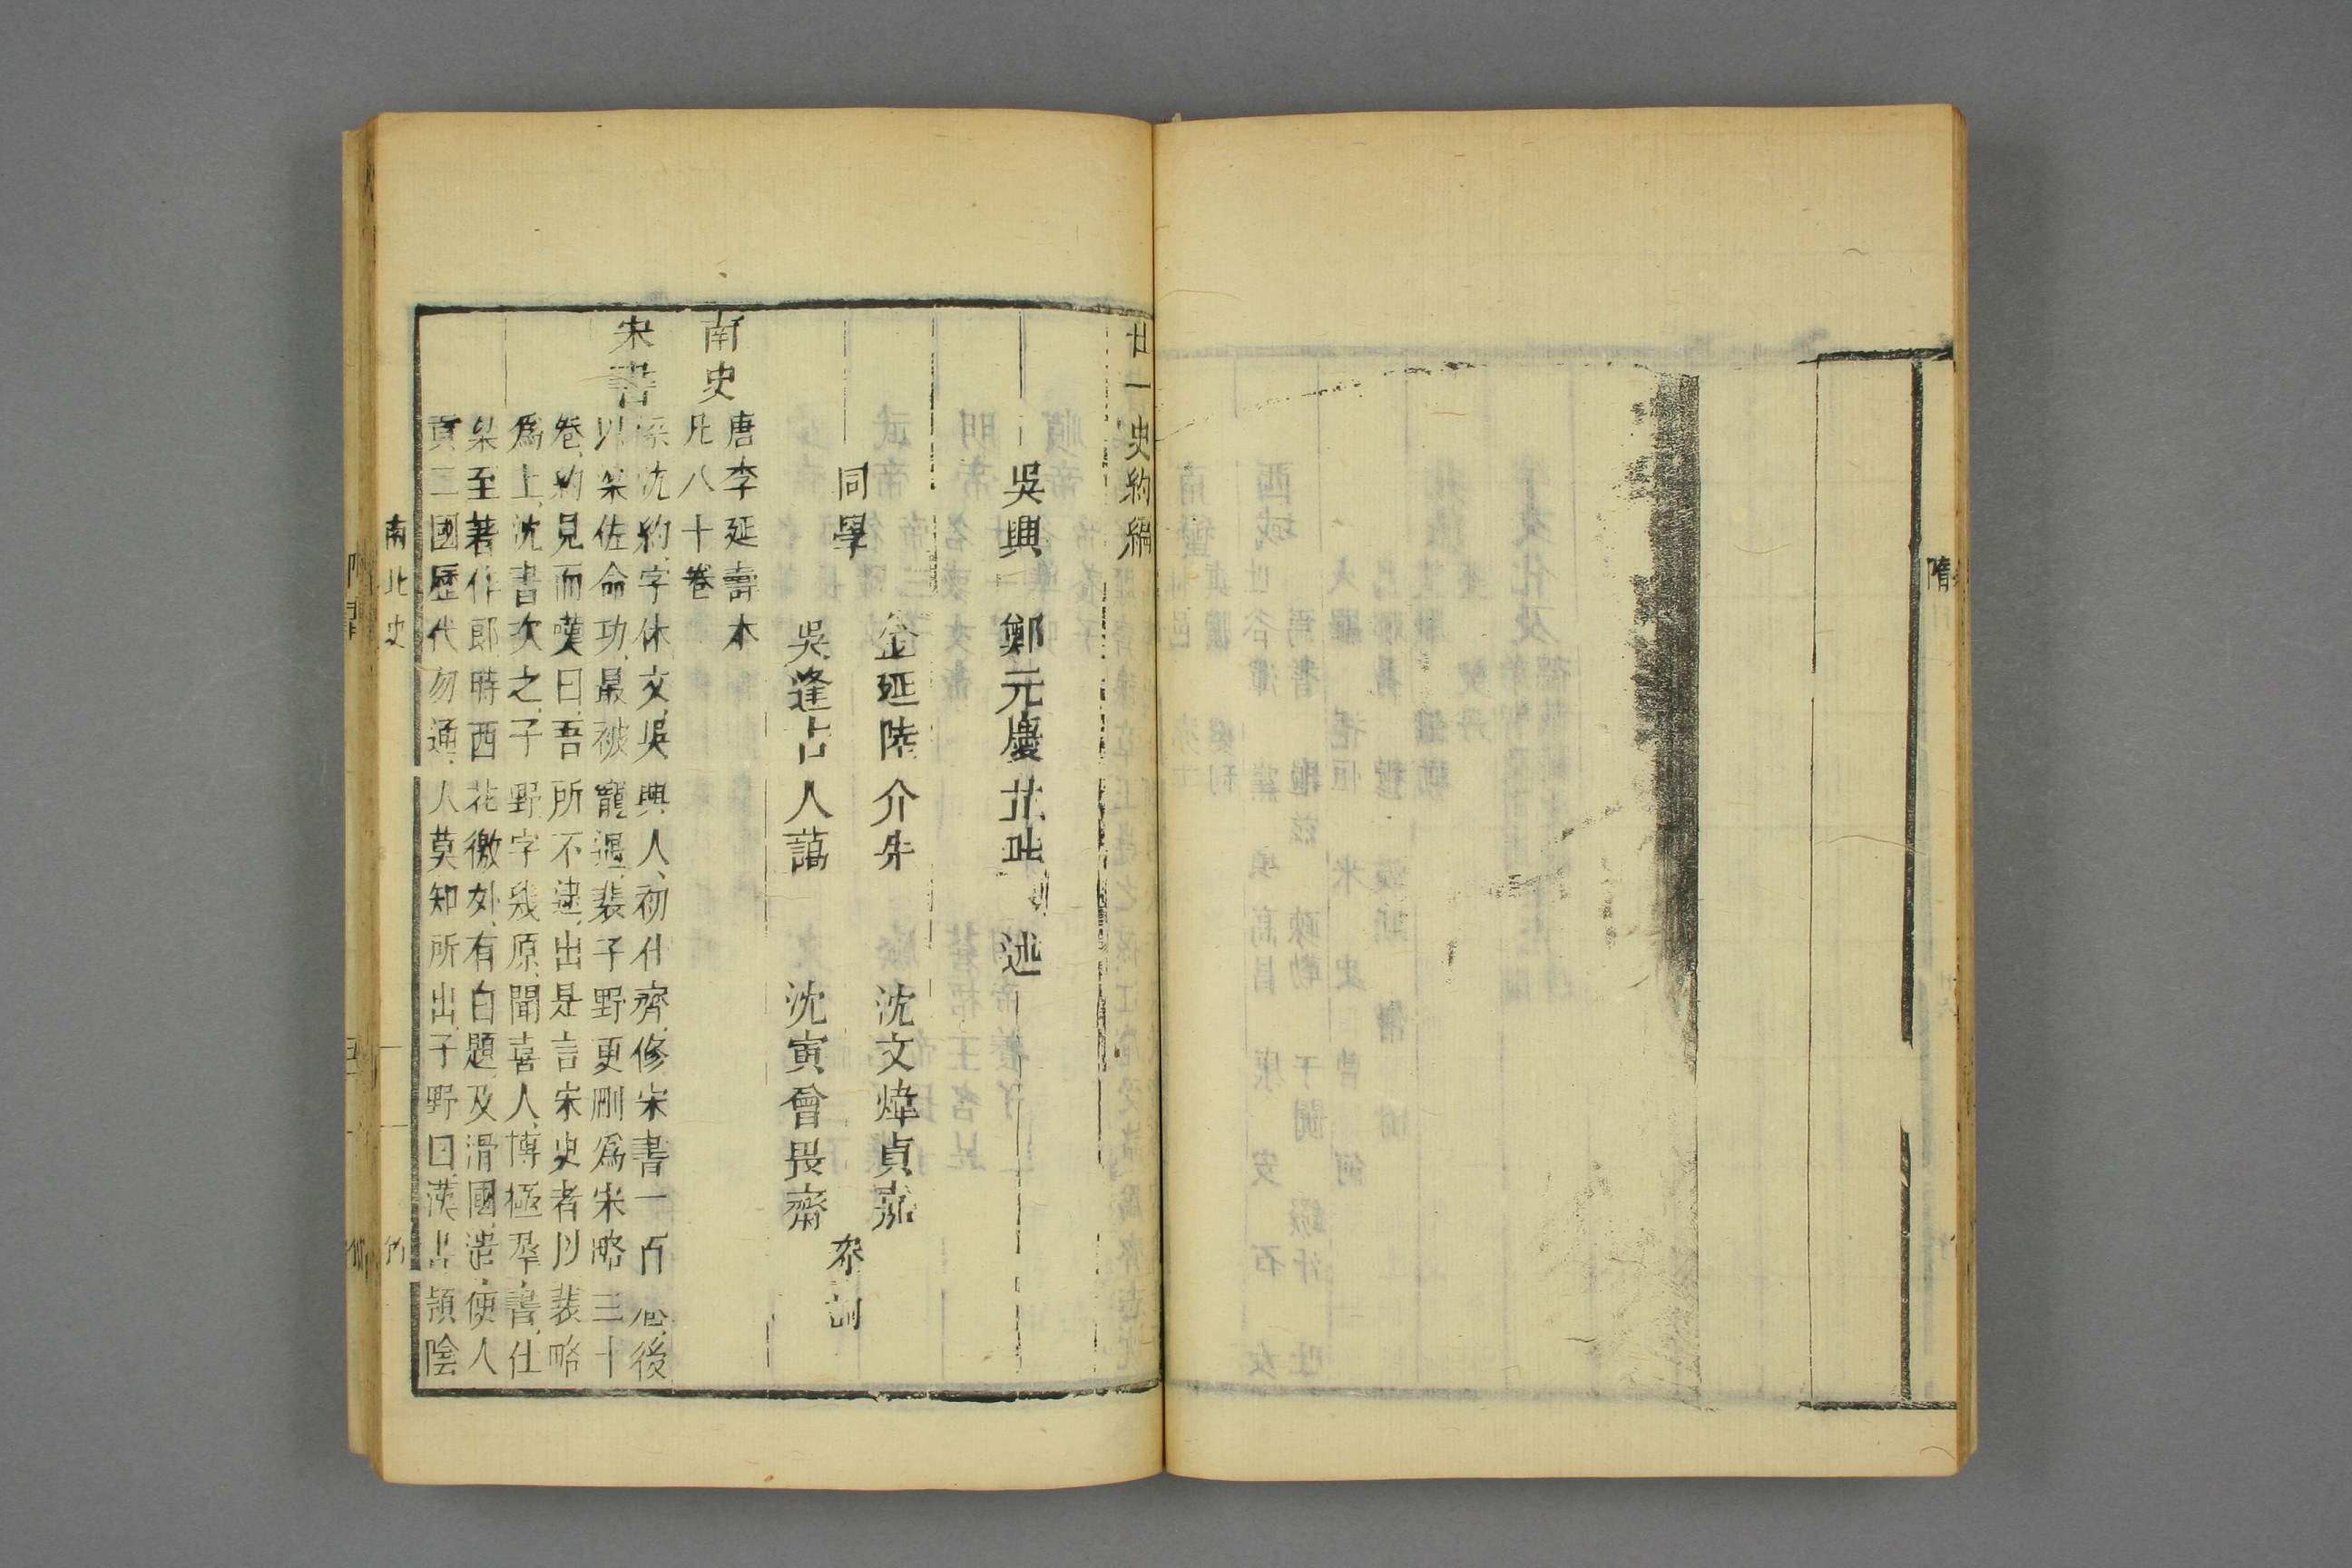 隋
廿一史約編
吳興 鄭元慶芷畦 述
同學
金延陸介朱 沈文煒貞嘉
吳逢占人藹 沈寅曾畏齋
叅訂
南史
唐李延壽本
凡八十卷
宋書
梁沈約、字休文、吳興人、初仕齊、修宋書一百卷、後
以梁佐命功、最被寵遇、裴子野更刪爲宋略三十
卷、約見而嘆曰、吾所不逮、出是言宋史者以裴略
爲上、沈書次之、子野、字幾原、聞喜人、博極羣書、仕
梁至著作郎、時西北徼外、有白題、及滑國、遣使入
貢、二國歷代勿通、人莫知所出、子野曰、漢 潁陰
南北史